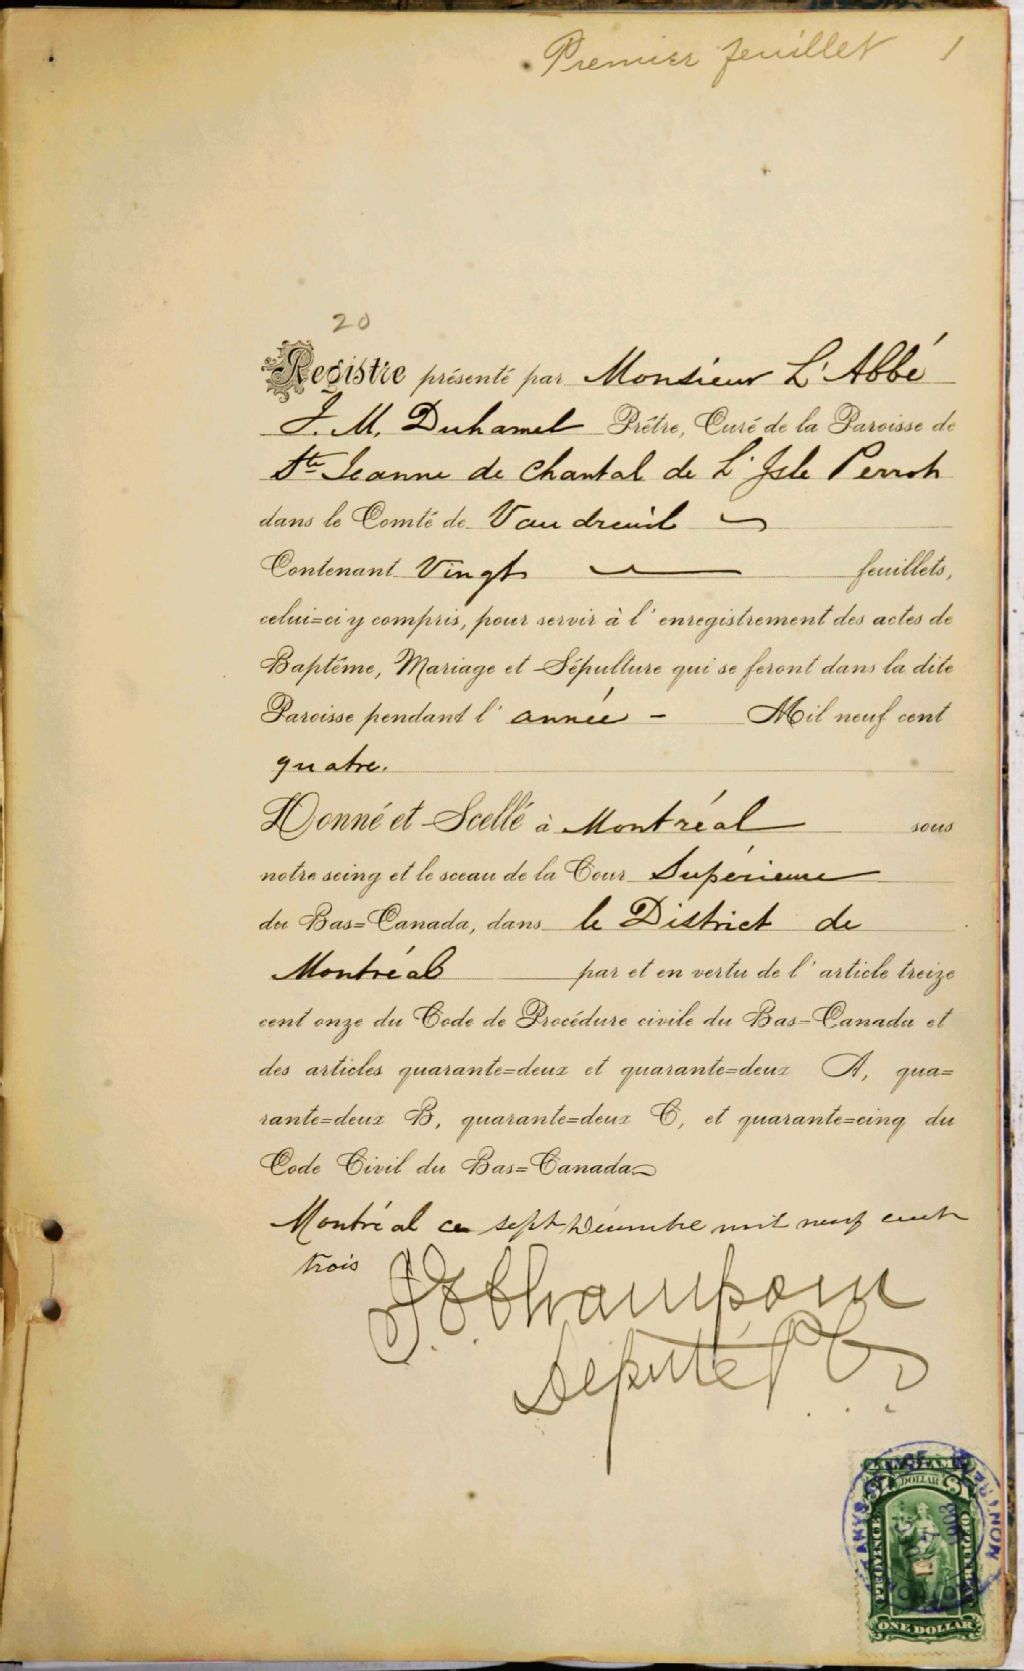 Premier feuillet 1
20
Registre présenté par Monsieur L'Abbé
J. M. Duhamel Prêtre, Curé de la Paroisse de
Ste Jeanne de Chantal de L'Isle Perrot
dans le Comté de Vaudreuil
Contenant Vingt feuillets,
celui=ci y compris, pour servir à l'enregistrement des actes de
Baptême, Mariage et Sépulture qui se feront dans la dite
Paroisse pendant l'année - Mil neuf cent
quatre.
Donné et Scellé à Montréal sous
notre seing et le sceau de la Cour Supérieure
du Bas=Canada, dans le District de
Montréal par et en vertu de l'article treize
cent onze du Code de Procédure civile du Bas=Canada et
des articles quarante=deux et quarante=deux A, qua=
rante=deux B, quarante=deux C, et quarante=cinq du
Code Civil du Bas=Canada
Montréal ce sept Décembre mil neuf cent
trois
Député P.C.S.
DOLLAR
PROVINCE
ONE DOLLAR